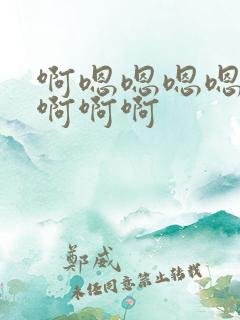 啊嗯嗯嗯嗯
啊啊啊
鄭威
未经同意禁止转载